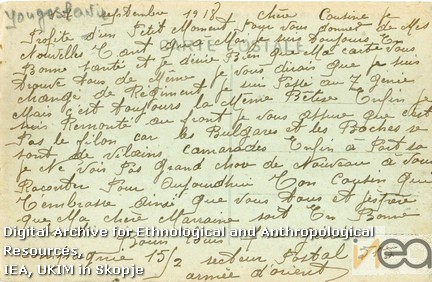 Yougoslavie
septembre 1918 chère Cousine je
Profite d'un Petit Moment pour vous donner de Mes
Nouvelles tant qu'a Moi je suis toujours En
CARTE POSTALE
Bonne Santé et je désire Bien que Ma carte vous
trouve tous de Même je vous dirais que je suis
changé de Regiment je suis Passé au 7 genie
Mais c'est toujours la Même Betise Enfin je
suis Remonté au front je vous assure que c'est
Pas le filon car les Bulgares et les Boches se
sont de vilains camarades Enfin à Part sa
je Ne vois Pas grand chose de Nouveau à vous
Raconter Pour aujourdhui ton Cousin qui
t'embrasse ainsi que vous tous et j'espère
que Ma chère Marraine soit En Bonne
tous
15/2 secteur Postal
armée d'orient
Digital Archive for Ethnological and Anthropological
Resources,
IEA, UKIM in Skopje
iea